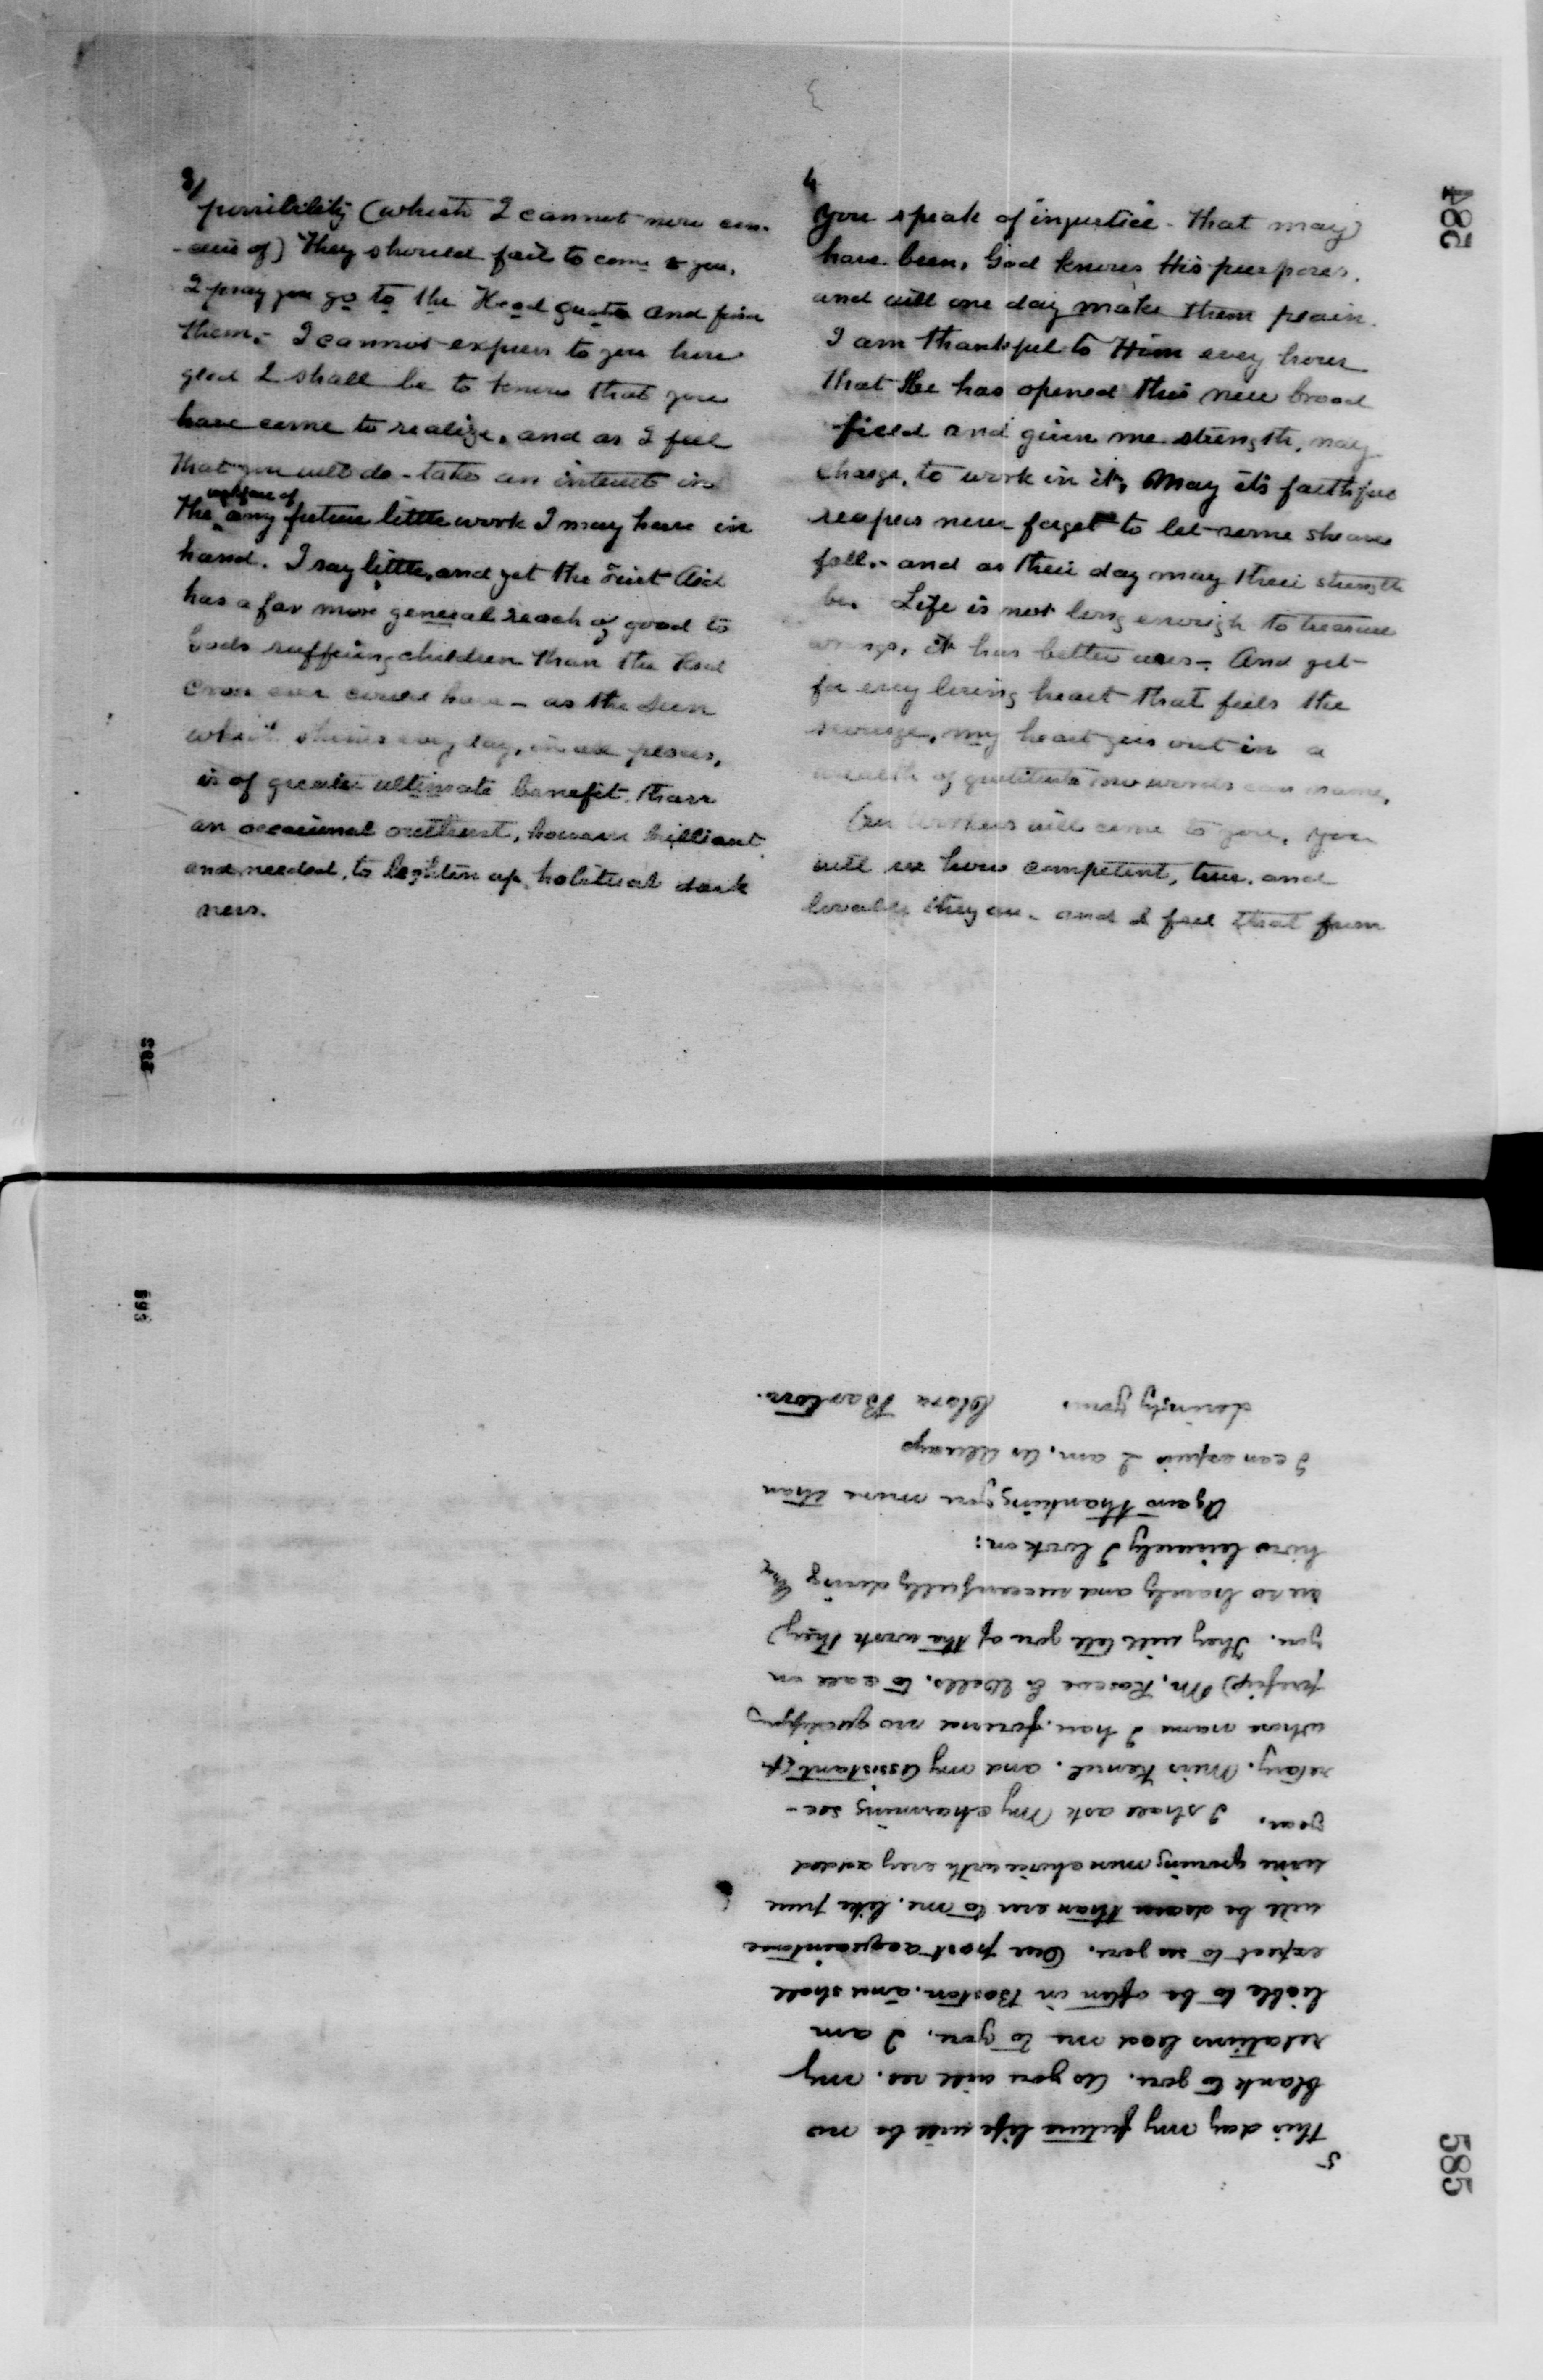 3/
possibility (which I cannot now con-
-ceive of) They should fail to come to you,
I pray you go to the Head quatrs and find
them;- I cannot express to you how
glad I shall be to know that you
have come to realize, and as I feel
that you will do - take an interest in
the welfare of any future little work I may have in
hand. I say little, and yet the First Aid
has a far more general reach of good to
Gods suffering children than the Red
Cross ever could have - as the Sun
which shines every day, in all places,
is of greater ultimate benefit, than
an occasional outburst, however brilliant
and needed, to lighten up habitual dark
ness.
4
You speak of injustice - That may
have been, God knows His purposes,
and will one day make them plain.
I am thankful to Him every hour
that He has opened this new broad
field and given me strength, nay
charge, to work in it, May its faithful
reapers never forget to let some sheaves
fall.- and as their day may their strength
be. Life is not long enough to treasure
wrongs, it has better uses - And yet
for every loving heart that feels the
scourge, my heart goes out in a
wealth of gratitude no words can name,
Our workers will come to you, you
will see how competent, true, and
lovable they are - and I feel that from
584
585
5
this day my future life will be no
blank to you. As you will see, my
relations lead me to you. I am
liable to be often in Boston, and shall
expect to see you. Our past acquaintance
will be dearer than ever to me, like pure
wine growing more choice with every added
year. I shall ask my charming sec-
retary, Miss Kensel, and my Assistant (to
whose name I have found no qualifying
prefix) Mr. Roscoe G Wells, to call on
you. They will tell you of the work they
are so bravely and successfully doing
how leisurely I look on:
Again thanking you more than
I can express I am, as always
Lovingly yours, Clara Barton.